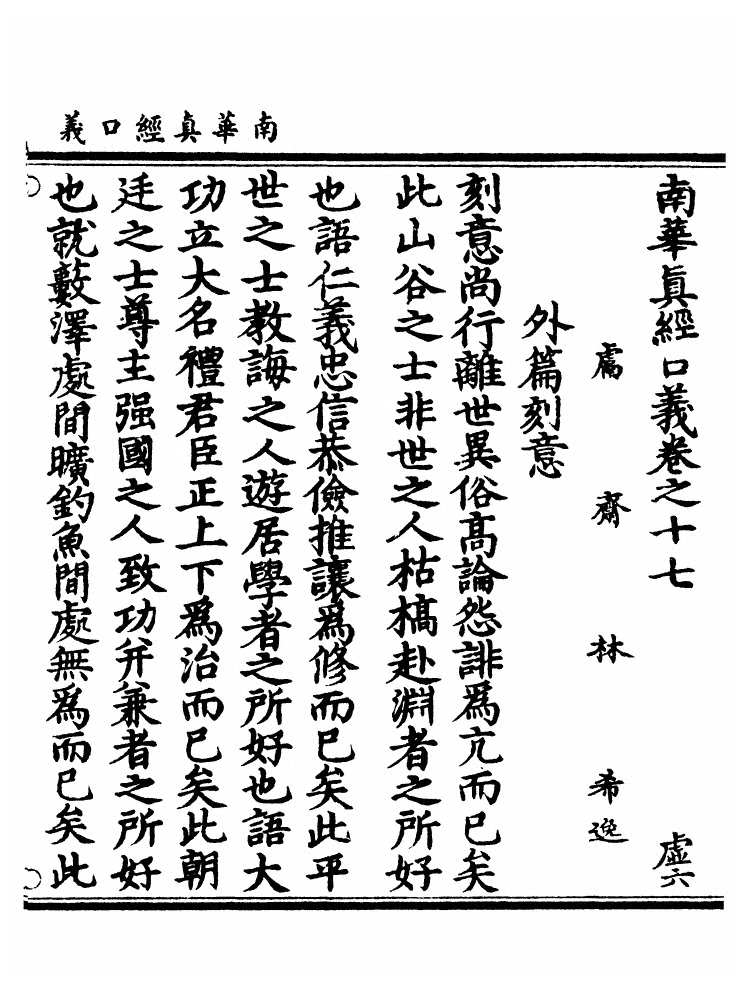 南華真經口義
南華真經口義卷之十七
虛六
鬳齋林希逸
外篇刻意
刻意尚行離世異俗高論怨誹為亢而已矣
此山谷之士非世之人枯槁赴淵者之所好
也語仁義忠信恭儉推讓為修而已矣此平
世之士教誨之人遊居學者之所好也語大
功立大名禮君臣正上下為治而已矣此朝
廷之士尊主强國之人致功并兼者之所好
也就藪澤處間曠釣魚間處無為而已矣此